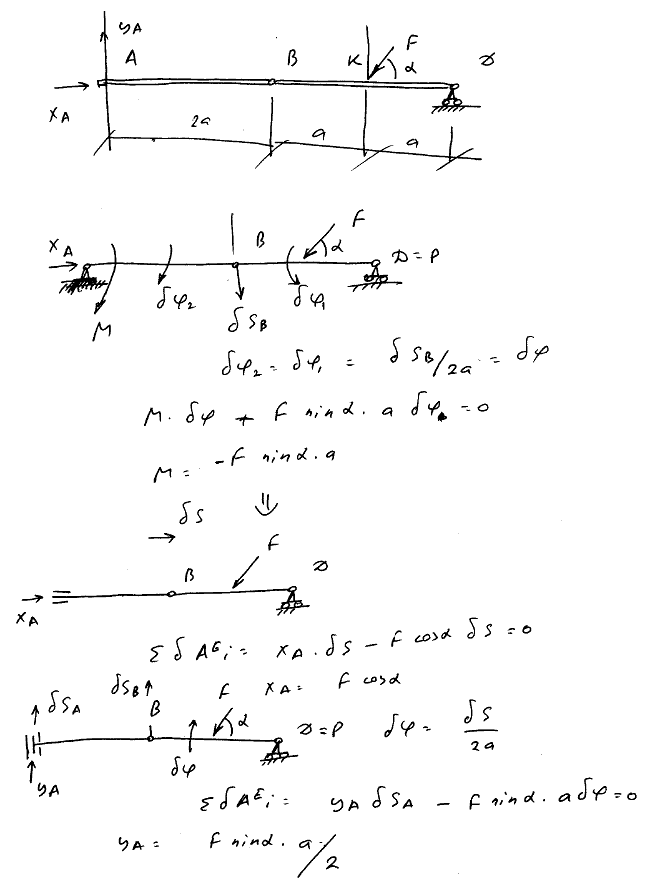 yA
A B K F α D
xA
2a a a
xA B F α D=P
M δφ₂ δS_B δφ₁
δφ₂ = δφ₁ = δS_B/2a = δφ
M. δφ + F sinα . a δφ = 0
M = -F sinα . a
δS ⇓
F
xA B D
Σ δA^E_i = xA . δS - F cosα δS = 0
xA = F cosα
δS_A δS_B B F α D=P δφ = δS/2a
yA δφ
Σ δA^E_i = yA δS_A - F sinα . a δφ = 0
yA = F sinα . a/2